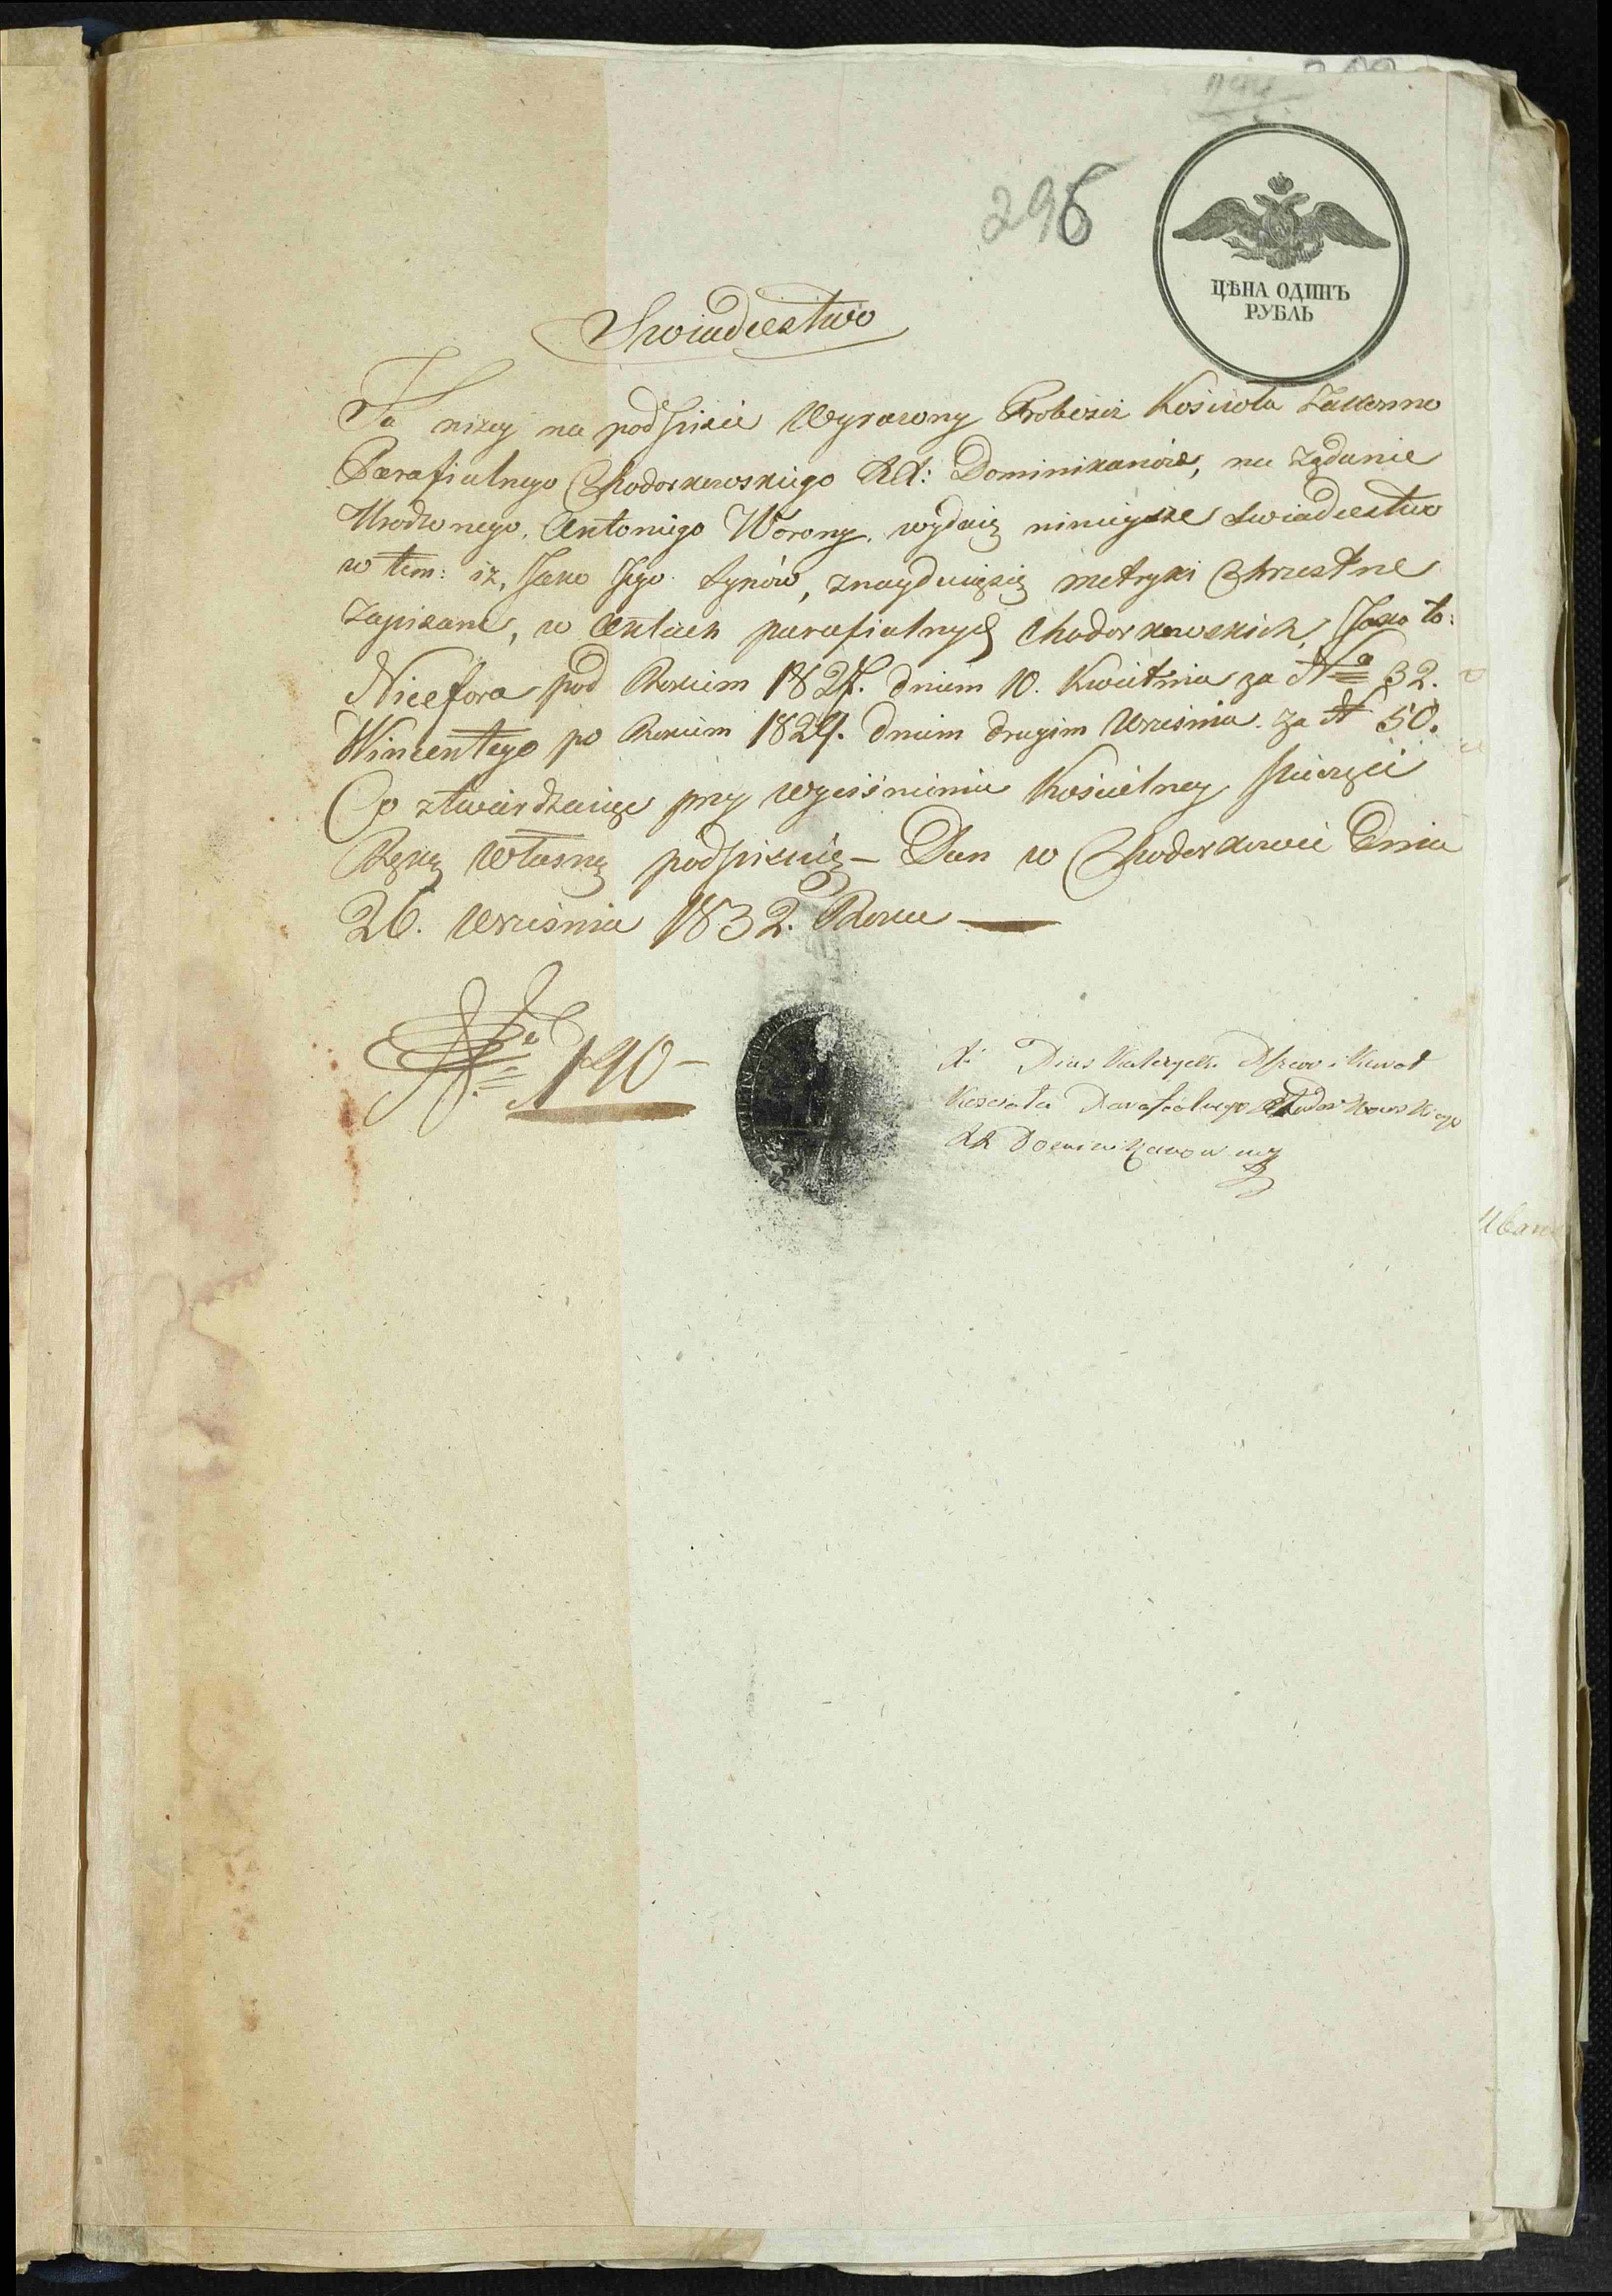 296
ЦѢНА ОДИНЪ
РУБЛЬ
Swiadectwo
Ja niżey na podpisie Wyrażony Proboszcz Kościoła Zakonno
Parafialnego Chodorkowskiego XX: Dominikanów, na żądanie
Urodzonego Antoniego Worony, wydaię ninieysze swiadectwo
w tem: iż, Jako Jego Synów, znayduięsię metryki Chrzestne
zapisane, w Aktach parafialnych Chodorkowskich, Jako to:
Nicefora pod Rokiem 1827. dniem 10. Kwietnia za N 32.
Wincentego po Rokiem 1829. dniem drugim Wrzesnia za N 50.
Co ztwierdzaiąc przy wyciśnieniu Kościelney pieczęci
Ręką własną podpisuię – Dan w Chodorkowie Dnia
26. Wrzesnia 1832. Roku —
N 190 –
X. Pius
Koscioła Parafialnego Chodorkowskiego
XX Dominikanow